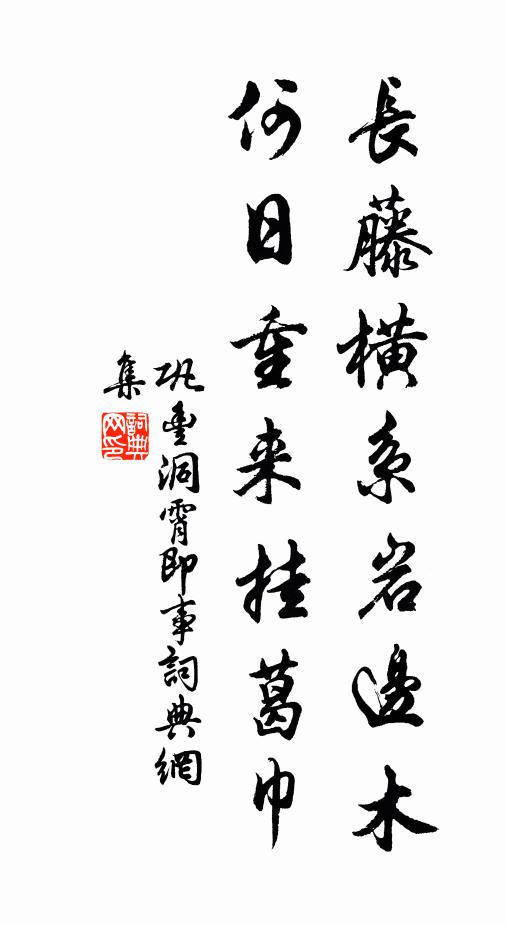 長藤橫系岩邊木
何日重來挂葛巾
巩豐洞霄即事詞典網
集
詞典
网印